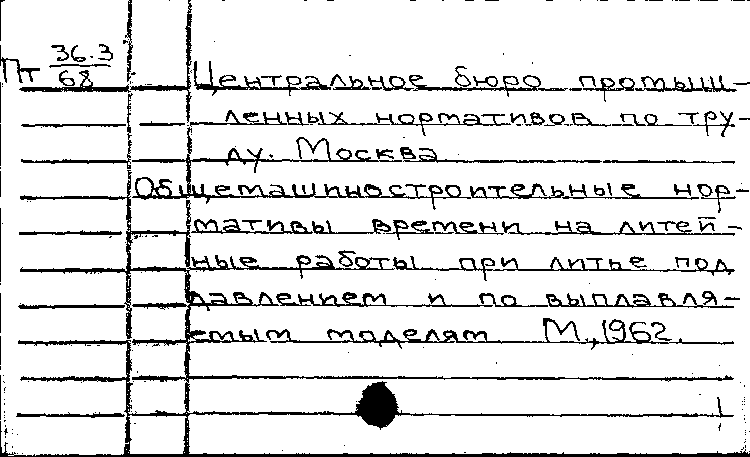 36.3
Пт 68
Центральное бюро промыш-
ленных нормативов по тру-
ду. Москва
Общемашиностроительные нор-
мативы времени на литей-
ные работы при литье под
давлением и по выплавля-
емым моделям М., 1962.